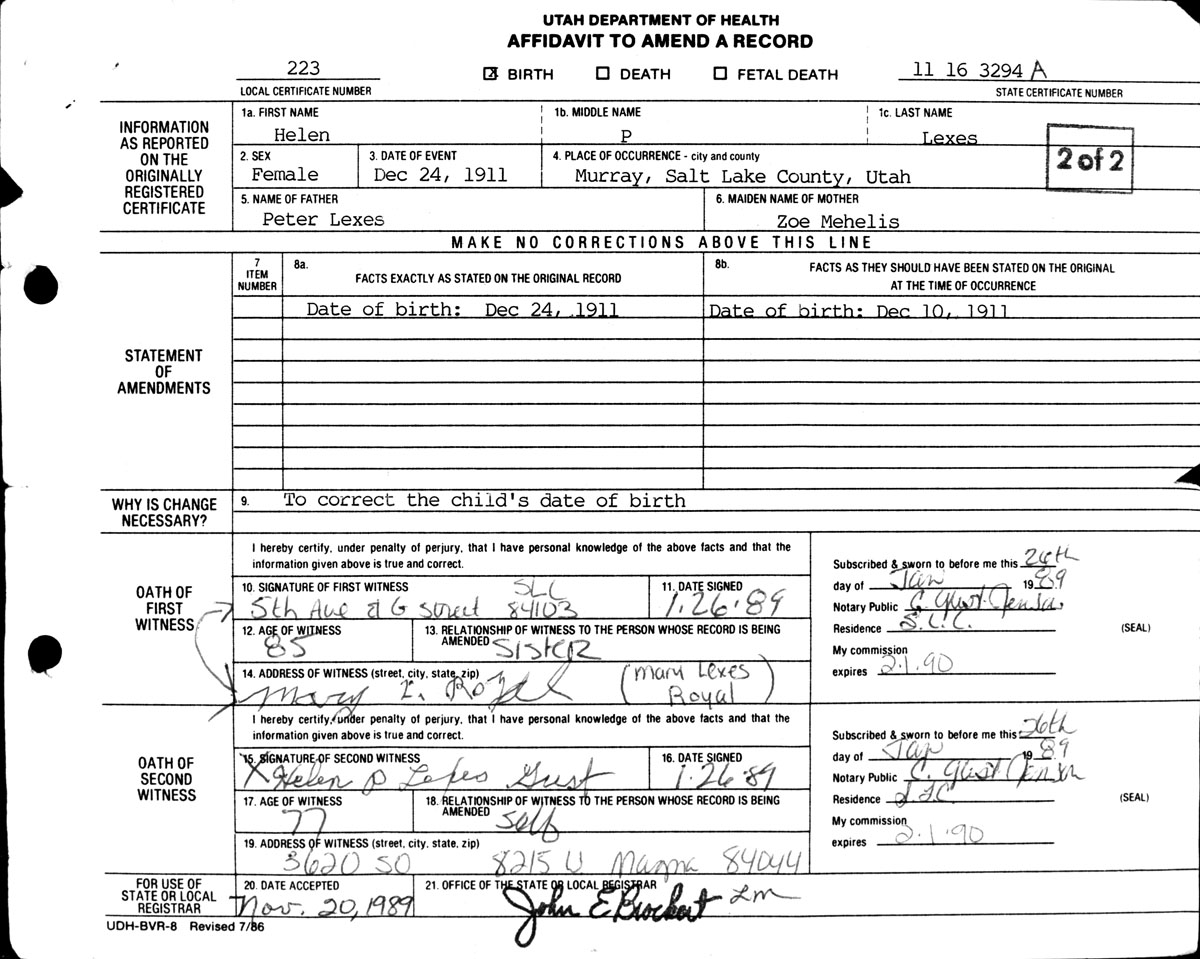 UTAH DEPARTMENT OF HEALTH
AFFIDAVIT TO AMEND A RECORD
223
LOCAL CERTIFICATE NUMBER
BIRTH DEATH FETAL DEATH
11 16 3294 A
STATE CERTIFICATE NUMBER
INFORMATION AS REPORTED ON THE ORIGINALLY REGISTERED CERTIFICATE
1a. FIRST NAME 1b. MIDDLE NAME 1c. LAST NAME
Helen P Lexes
2 of 2
2. SEX 3. DATE OF EVENT 4. PLACE OF OCCURRENCE - city and county
Female Dec 24, 1911 Murray, Salt Lake County, Utah
5. NAME OF FATHER 6. MAIDEN NAME OF MOTHER
Peter Lexes Zoe Mehelis
MAKE NO CORRECTIONS ABOVE THIS LINE
STATEMENT OF AMENDMENTS
7 ITEM NUMBER
8a. FACTS EXACTLY AS STATED ON THE ORIGINAL RECORD
8b. FACTS AS THEY SHOULD HAVE BEEN STATED ON THE ORIGINAL
AT THE TIME OF OCCURRENCE
Date of birth: Dec 24, 1911 Date of birth: Dec 10, 1911
WHY IS CHANGE NECESSARY?
9. To correct the child's date of birth
OATH OF FIRST WITNESS
I hereby certify, under penalty of perjury, that I have personal knowledge of the above facts and that the
information given above is true and correct.
10. SIGNATURE OF FIRST WITNESS SLC 11. DATE SIGNED
5th Ave & G street 84103 1-26-89
12. AGE OF WITNESS 13. RELATIONSHIP OF WITNESS TO THE PERSON WHOSE RECORD IS BEING AMENDED
85 SISTER
14. ADDRESS OF WITNESS (street, city, state, zip)
Mary L. Royal (Mary Lexes
Royal)
Subscribed & sworn to before me this 26th
day of Jan 1989
Notary Public C. Gust Jensen
Residence S.L.C. (SEAL)
My commission
expires 2-1-90
OATH OF SECOND WITNESS
I hereby certify, under penalty of perjury, that I have personal knowledge of the above facts and that the
information given above is true and correct.
15. SIGNATURE OF SECOND WITNESS 16. DATE SIGNED
X Helen P Lexes Gust 1-26-89
17. AGE OF WITNESS 18. RELATIONSHIP OF WITNESS TO THE PERSON WHOSE RECORD IS BEING AMENDED
77 Self
19. ADDRESS OF WITNESS (street, city, state, zip)
3620 SO 8215 W Magna 84044
Subscribed & sworn to before me this 26th
day of Jan 1989
Notary Public C. Gust Jensen
Residence SLC (SEAL)
My commission
expires 2-1-90
FOR USE OF STATE OR LOCAL REGISTRAR
20. DATE ACCEPTED 21. OFFICE OF THE STATE OR LOCAL REGISTRAR
Nov. 20, 1989 John E Brockert Lm
UDH-BVR-8 Revised 7/86